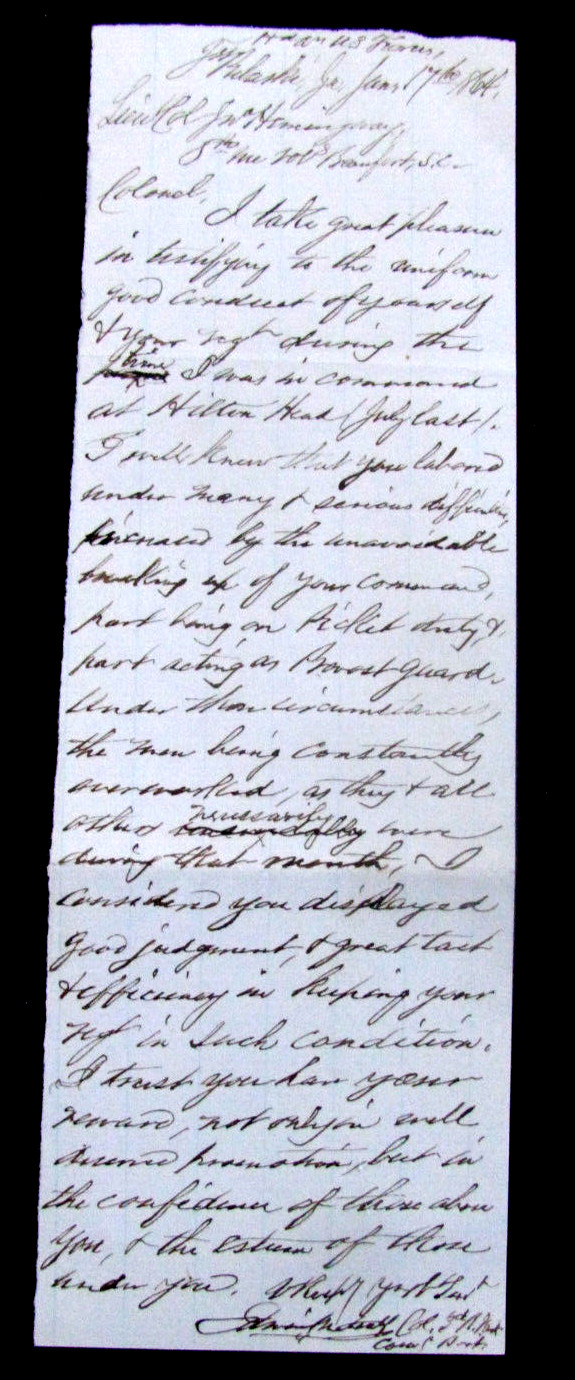 Hd Qrs U.S. Forces,
Fort Pulaski, Ga, Jan. 17th 1864.
Lieut Col Jno Hemingway,
8th Me Vols Beaufort, S.C.
Colonel,
I take great pleasure
in testifying to the uniform
good conduct of yourself
& your regt during the
time I was in command
at Hilton Head (July last).
I well know that you labored
under many & serious difficulties,
increased by the unavoidable
breaking up of your command,
part being on Picket duty, &
part acting as Provost Guard.
Under those circumstances,
the men being constantly
overworked, as they & all
others necessarily were
during that month, I
considered you displayed
good judgment, & great tact
& efficiency in keeping your
regt in such condition.
I trust you have your
reward, not only in well
deserved promotion, but in
the confidence of those above
you, & the esteem of those
under you. Very Resp'y Your Obt Servt
Col.
Comg Post